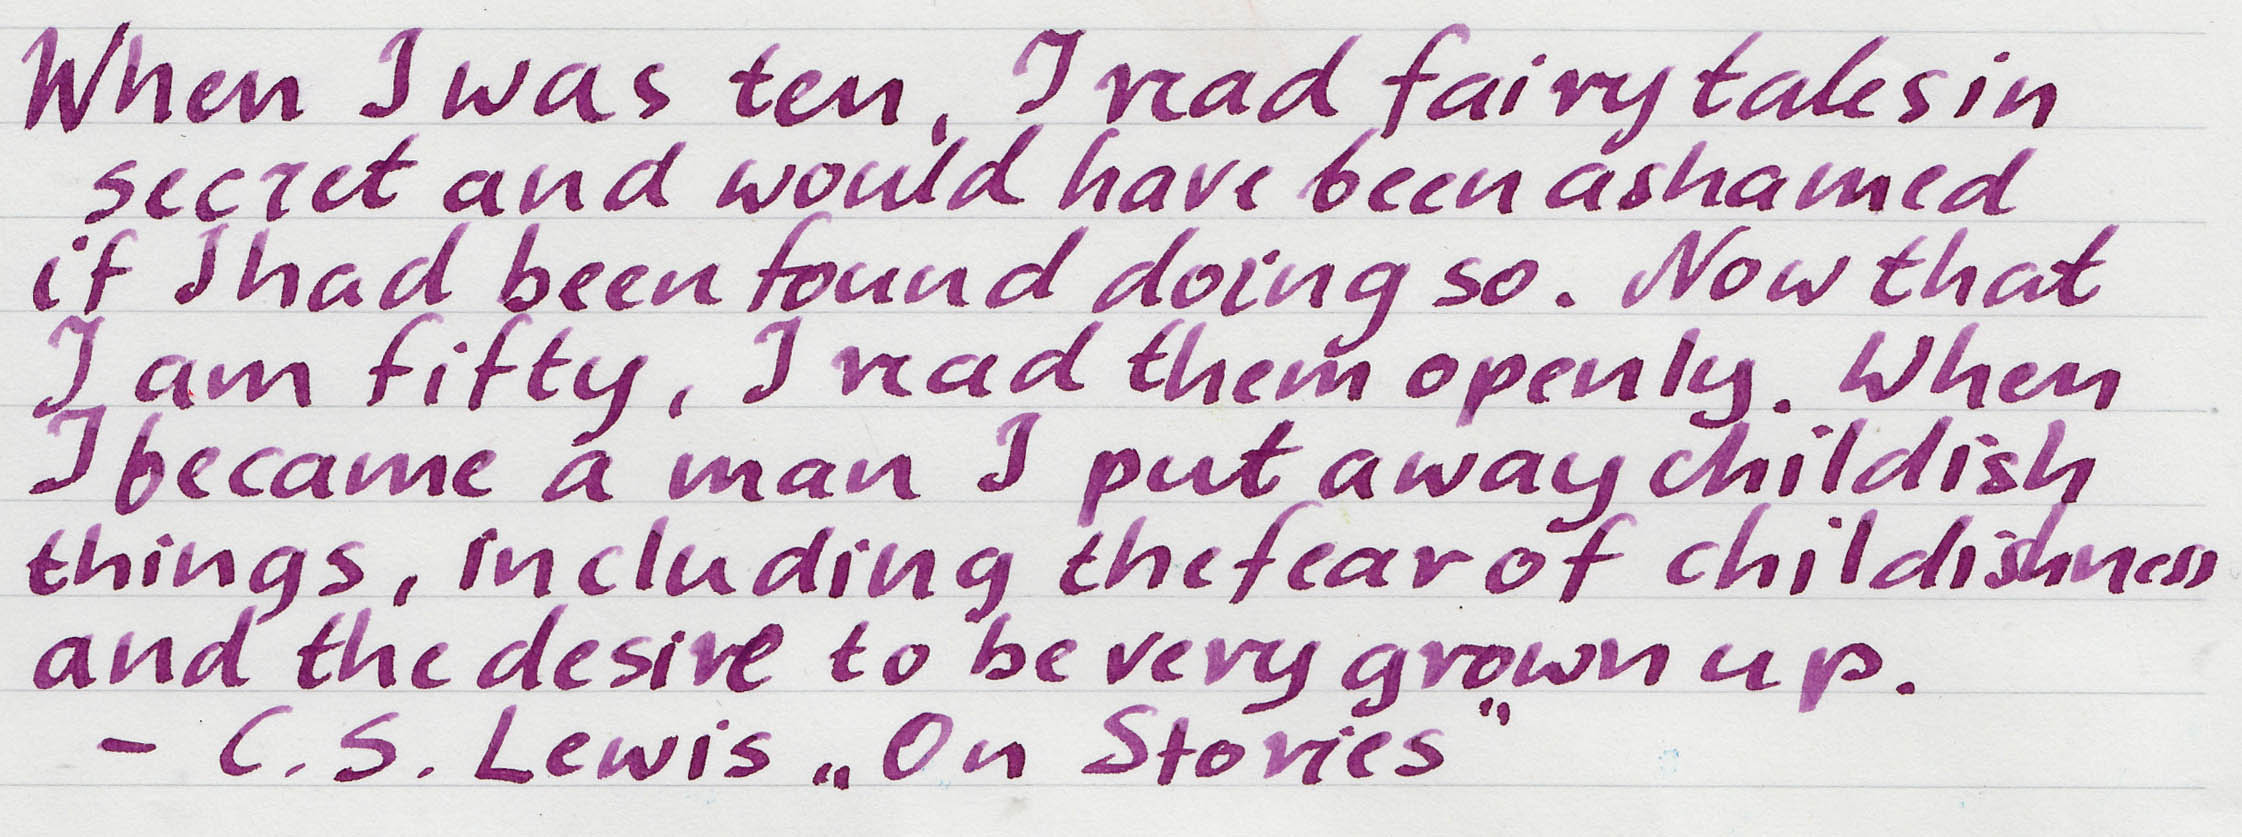 When I was ten, I read fairy tales in
secret and would have been ashamed
if I had been found doing so. Now that
I am fifty, I read them openly. When
I became a man I put away childish
things, including the fear of childishness
and the desire to be very grown up.
– C. S. Lewis „On Stories“